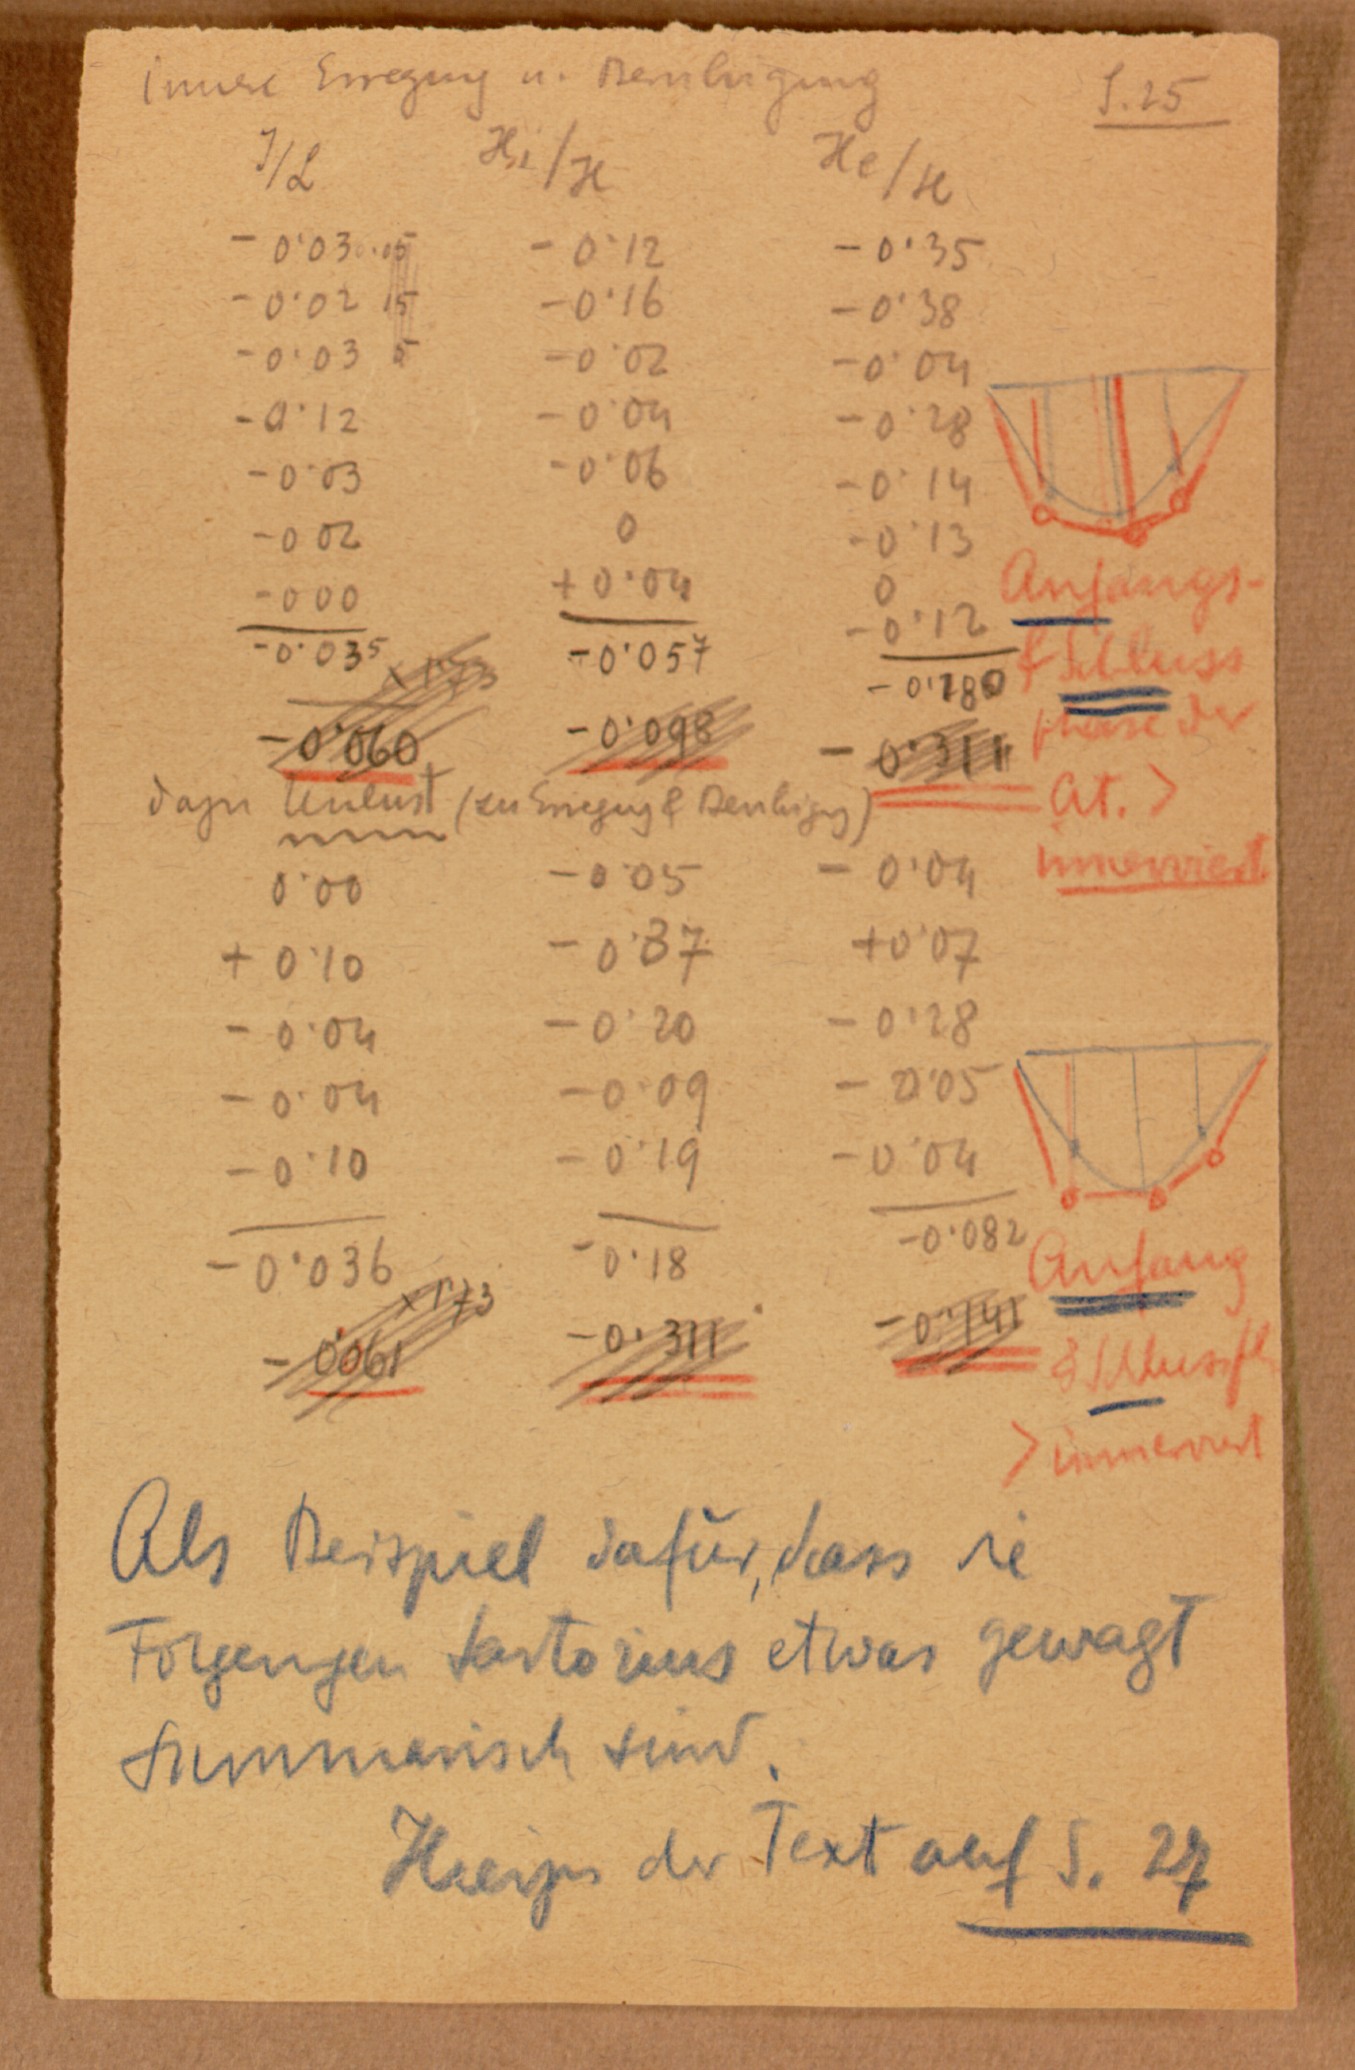 innere Erregung u. Beruhigung S. 25
J/L Hi/H He/H
- 0·03 - 0·12 - 0·35
- 0·02 15 - 0·16 - 0·38
- 0·03 5 - 0·02 - 0·04
- 0·12 - 0·04 - 0·28
- 0·03 - 0·06 - 0·14
- 0 02 0 - 0·13
- 0 00 + 0·04 0
- 0·12
- 0·035 - 0·057 - 0·180
x 1·73
- 0·060 - 0·098 - 0·311
Anfangs-
& Schluss
phase der
At. >
innerviert
dazu Unlust (zu Erregung & Beruhigung)
0·00 - 0·05 - 0·04
+ 0·10 - 0·37 + 0·07
- 0·04 - 0·20 - 0·28
- 0·04 - 0·09 - 0·05
- 0·10 - 0·19 - 0·04
- 0·036 - 0·18 - 0·082
x 1·73
- 0·061 - 0·311 - 0·141
Anfang
& Schlussph
> innerviert
Als Beispiel dafür, dass die
Folgerungen Sartorius etwas gewagt
summarisch sind.
Hiezu der Text auf S. 27